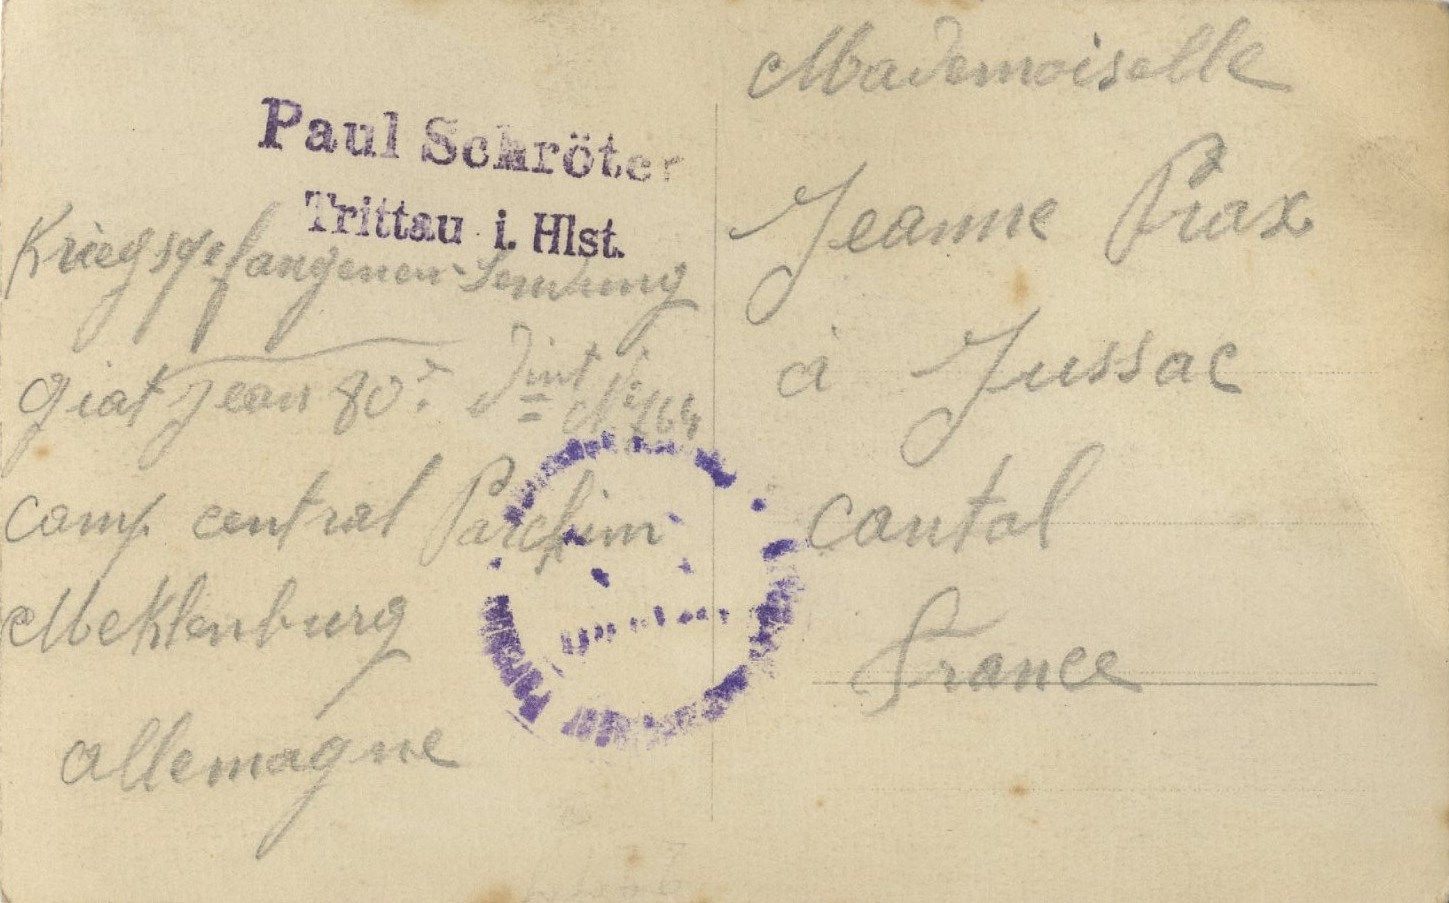 Paul Schröter
Trittau i. Hlst.
Kriegsgefangenen-Sendung
Giat Jean 80e
camp central Parchim
Meklenburg
allemagne
Mademoiselle
Jeanne Prax
à Jussac
cantal
France